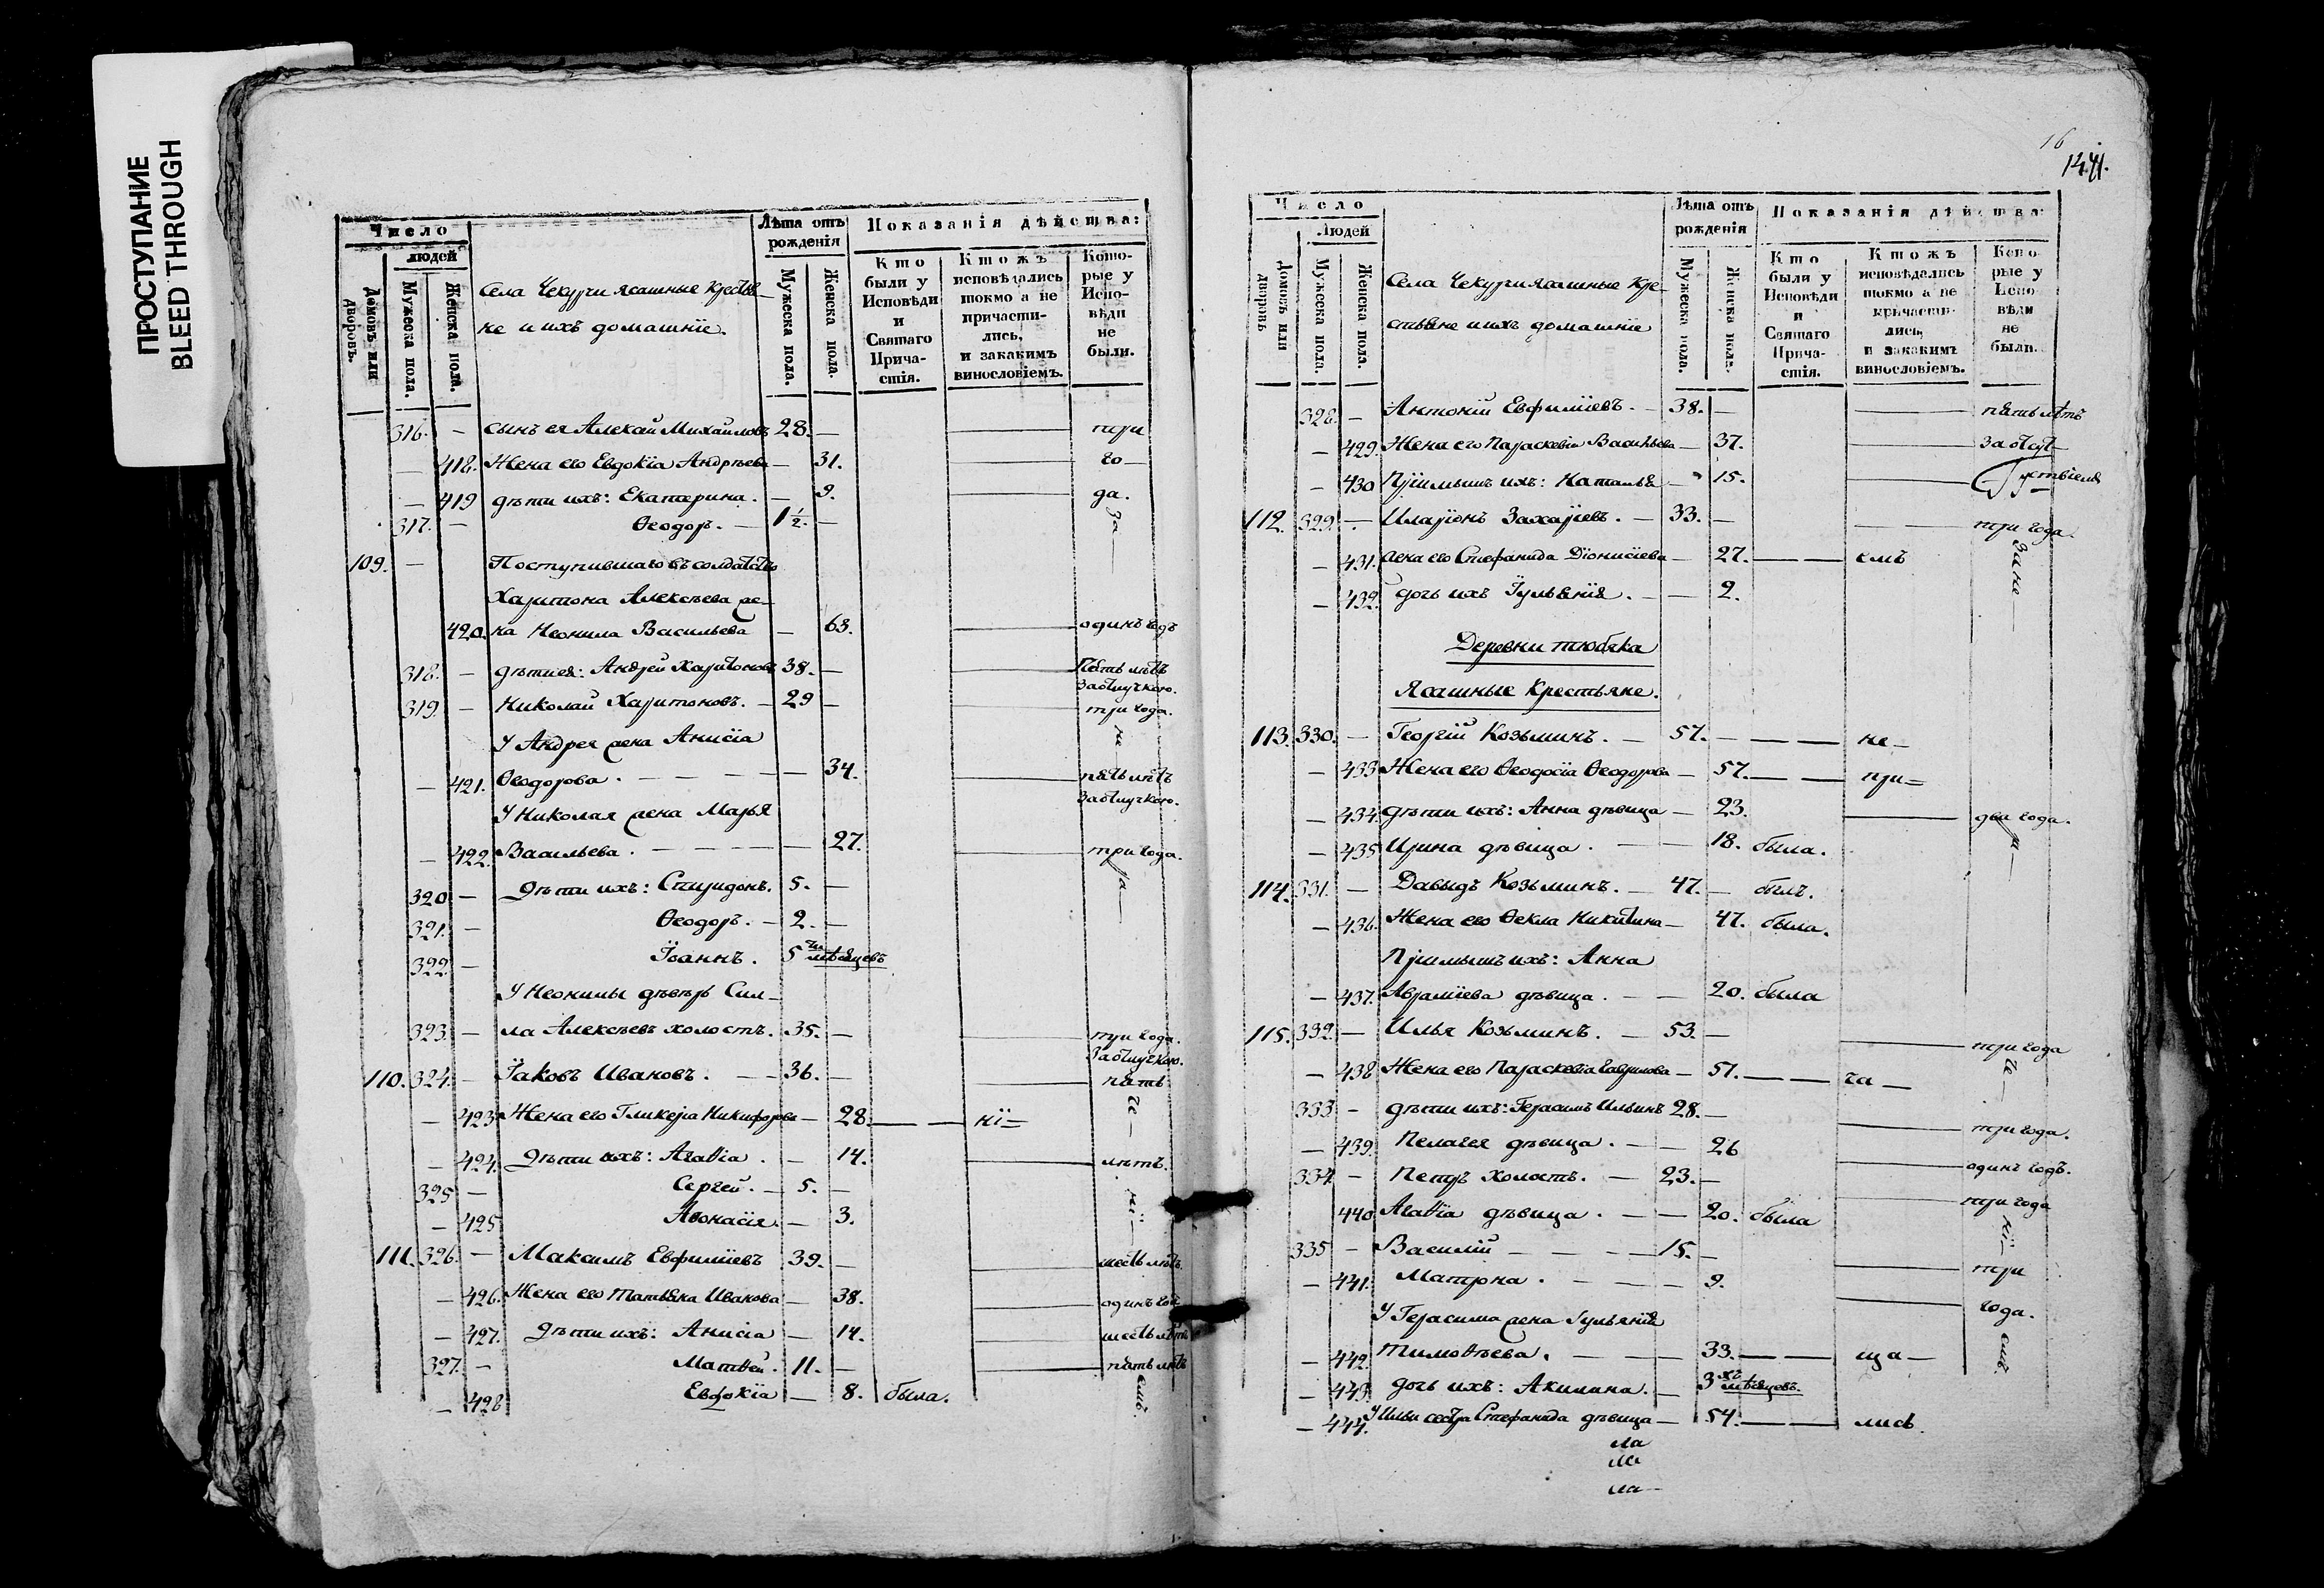 ПРОСТУПАНИЕ
BLEED THROUGH
Число
людей
Домовъ или дворовъ.
Мужеска пола.
Женска пола.
Села Чекурчи ясашные крестья-
не и ихъ домашнїе.
Лѣта отъ рожденія
Мужеска пола.
Женска пола.
Показанія дѣйства:
Кто были у Исповѣди и Святаго Прича- стія.
Ктожъ исповѣдались токмо а не причасти- лись, и закакимъ винословіемъ.
Кото- рые у Испо- вѣди не были.
316. — сынъ ея Алексѣй Михайловъ 28. — три
— 418. Жена его Евдокїа Андрѣева — 31. го—
— 419 дѣти ихъ: Екатерина. — 9. да.
317. — Ѳеодоръ. — 1 1/2. — За—
109. — Поступившаго въ солдатство
Харитона Алексѣева же-
420. на Неонила Васильева — 63. одинъ годъ
318. — дѣти ея: Андрей Харитоновъ 38. — Пять лѣтъ
За отлучкою.
319. — Николай Харитоновъ. — 29 — три года.
У Андрея жена Анисїа не
— 421. Ѳеодорова. — 34. пять лѣтъ
За отлучкою.
У Николая жена Марья
— 422. Васильева. — 27. три года.
320 — Дѣти ихъ: Спиридонъ. 5. — ра—
321. — Ѳеодоръ. — 2. —
322 — Їоаннъ. 5 ти мѣсяцевъ
У Неонилы дѣверь Сил-
323. — ла Алексѣевъ холостъ. 35. — три года.
За отлучкою.
110. 324. — Їаковъ Ивановъ. — 36. — пять
— 423. Жена его Гликерїа Никифорова — 28. — — нї= че—
— 424. Дѣти ихъ: Агаѳїа. — 14. лѣтъ.
325 — Сергей. — 5. —
— 425 Аѳонасїя. — 3. нї—
111. 326. — Максимъ Евфимїевъ 39. — шесть лѣтъ.
— 426. Жена его Татьяна Иванова — 38. одинъ годъ
— 427. Дѣти ихъ: Анисїа — 14. шесть лѣтъ
327. — Матѳей. 11. — пять лѣтъ
— 428 Евдокїа — 8. была. емъ.
16
1441.
Число
Людей
Домовъ или дворовъ
Мужеска пола.
Женска пола.
Села Чекурчи ясашные Кре-
стьяне и ихъ домашнїе
Лѣта отъ рожденія
Мужеска пола.
Женска пола.
Показанія дѣйства:
Кто были у Исповѣди и Святаго Прича- стія.
Ктожъ исповѣдались токмо а не причасти- лись, и закакимъ винословіемъ.
Кото- рые у Испо- вѣди не были.
328. — Антонїй Евфимїевъ. — 38. — пять лѣтъ
— 429. Жена его Параскевїа Васильева — 37. за отсут—
— 430 Прїимышъ ихъ: Наталья — 15. ствїемъ
112. 329. — Иларїонъ Захарїевъ. — 33. — три года.
— 431. жена его Стефанида Дїонисїева — 27. — емъ За не—
— 432. дочь ихъ Їульянїя. — — 2.
Деревни тюбяка
Ясашные Крестьяне.
113. 330. — Георгїй Козьминъ. — 57. — — — не—
— 433 Жена его Ѳеодосїа Ѳеодорова — 57. — — при=
— 434. дѣти ихъ: Анна дѣвица — 23. два года.
— 435 Ирина дѣвица. — — 18. была. ра—
114. 331. — Давыдъ Козьминъ. — 47. — былъ.
— 436. Жена его Ѳекла Никитина — 47. была.
Прїимышъ ихъ: Анна
— 437. Аврамїева дѣвица. — — 20. была
115. 332. — Илья Козьминъ. — 53. — три года
— 438 Жена его Параскевїа Гаврилова — 51. — — ча— че—
333. — дѣти ихъ: Герасимъ Ильинъ 28. — три года.
— 439. Пелагея дѣвица. — — 26 одинъ годъ.
334 — Петръ холостъ. — 23. — три года
440. Агаѳїа дѣвица. — — 20. была нї—
335 — Василїй — — — 15. — три
— 441. Матрона. — — — 9. года.
У Герасима жена Їульянїя
— 442. Тимоѳѣева. — — 33. — — ща— емъ.
— 443. дочь ихъ: Акилина. — 3 хъ мѣсяцевъ.
— 444. У Ильи сестра Стефанида дѣвица — 54. — — лись